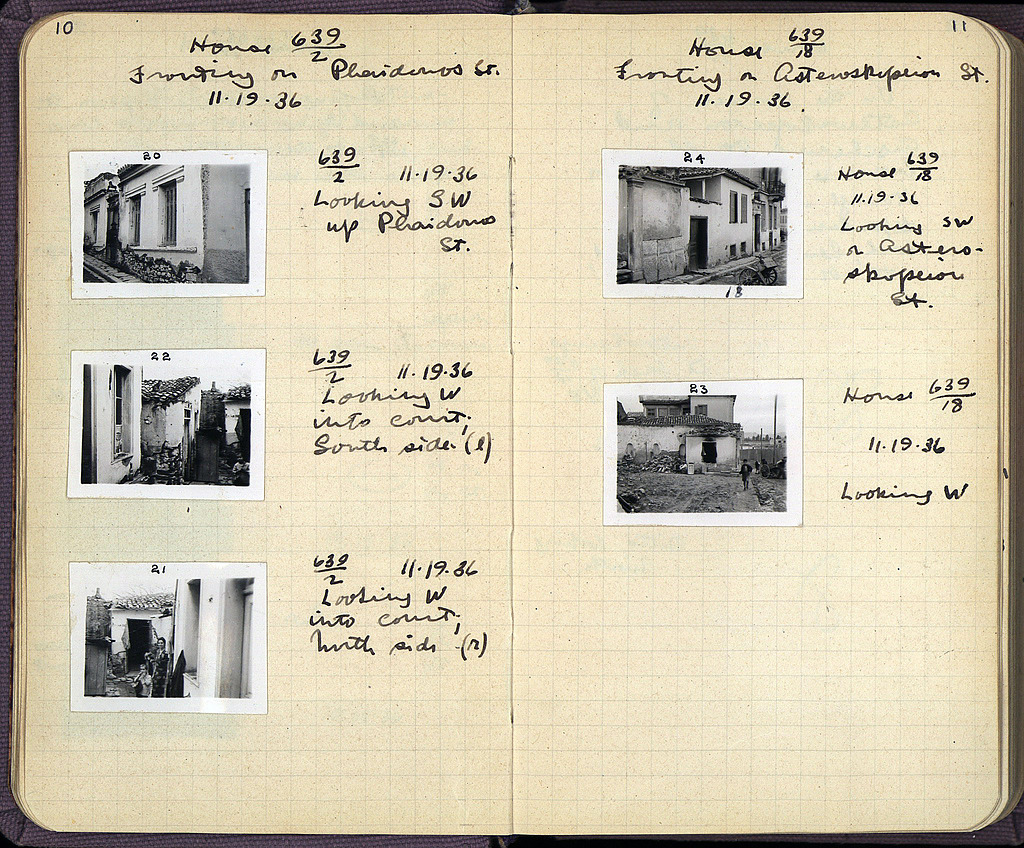 10
House 639/2
Fronting on Phaidonos St.
11·19·36
20
639/2 11·19·36
Looking SW
up Phaidonos
St.
22
639/2 11·19·36
Looking W
into court;
South side (l)
21
639/2 11·19·36
Looking W
into court;
North side (r)
11
House 639/18
Fronting on Asteroskopeion St.
11·19·36.
24
18
House 639/18
11·19·36
Looking SW
on Astero-
skopeion
St.
23
House 639/18
11·19·36
Looking W